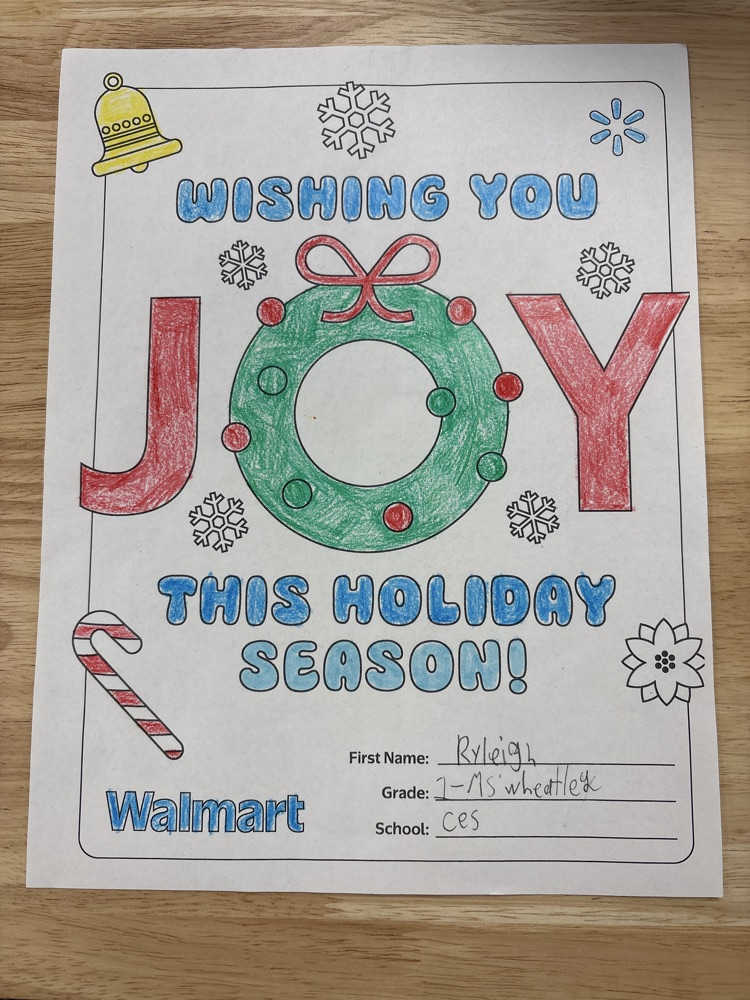 WISHING YOU
JOY
THIS HOLIDAY
SEASON!
First Name: Ryleigh
Grade: 1-Ms wheatley
School: ces
Walmart